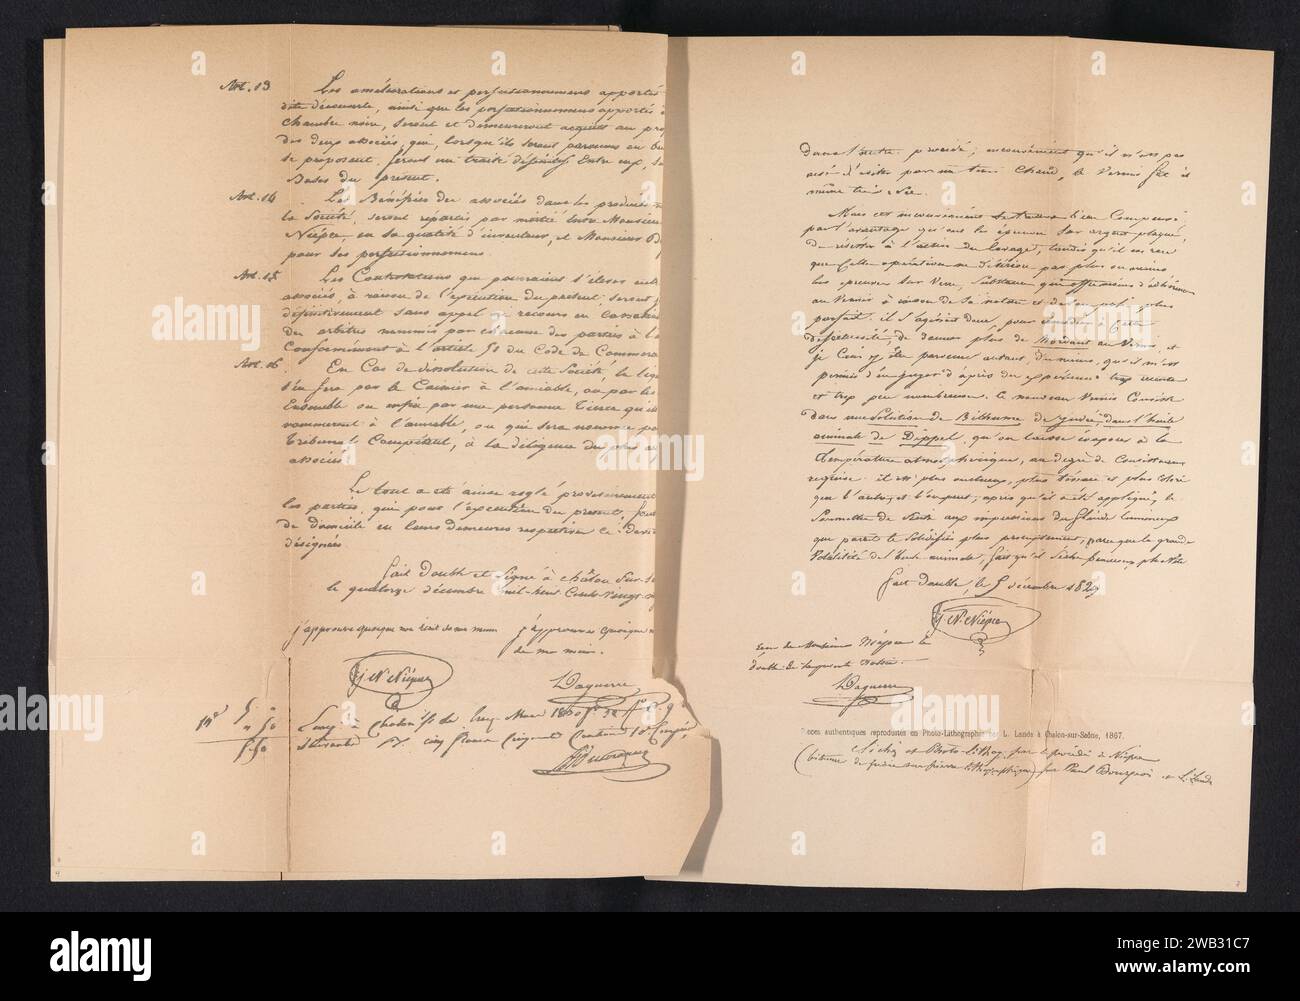 Art. 13
Les améliorations et perfectionnemens apportés
dite découverte, ainsi que les perfectionnemens apportés à
chambre noire, seront et demeureront acquis au pro
des deux associés, qui, lorsqu'ils seront parvenus au bu
se proposent, feront un traité définitif entre eux, su
Bases du présent.
Art. 14
Les Bénéfices des associés dans les produits
la Société, seront répartis par moitié entre Monsieur
Niépce, en sa qualité d'inventeur, et Monsieur D
pour ses perfectionnemens.
Art. 15
Les Contestations qui pourraient s'élever entre
associés, à raison de l'exécution du présent seront
définitivement sans appel ni recours en Cassation
des arbitres nommés par chacune des parties à l'a
Conformément à l'article 51 du Code de Commerce
Art. 16
En Cas de dissolution de cette Société la liqu
s'en fera par le Caissier à l'amiable, ou par les
Ensemble ou enfin par une personne Tierce qu'il
nommeront à l'amiable, ou qui sera nommée pa
Tribunal Compétent, à la diligence du plus a
associés
Le tout a été ainsi réglé provisoirement
les parties, qui pour l'exécution du présent, font
de domicile en leurs demeures respectives ci-devant
désignées
fait Double et signé à Châlon sur S
le quatorze décembre mil-huit Cents vingt n
j'approuve quoique non écrit de ma main j'approuve quoique n
de ma main.
J. N. Niépce
Daguerre
Enrg. à Chalon s/S le treize Mars 1830 f° 32
cinq francs cinquante Centimes
Ducrogeux
dans l'autre procédé; inconvénient qu'il n'est pas
aisé d'éviter par un tems Chaud, le Vernis fut-il
même très sec.
Mais cet inconvénient se trouve bien Compensé
par l'avantage qu'ont les épreuves sur argent plaqué,
de résister à l'action du lavage, tandis qu'il est rare
que Cette opération ne détériore pas plus ou moins
les épreuves sur Verre, Substance qui offre moins d'adhérence
au Vernis à raison de sa nature et de son poli plus
parfait. il s'agissait donc, pour remédier à Cette
défectuosité, de donner plus de Mordant au Vernis, et
je Crois y être parvenu autant du moins, qu'il m'est
permis d'en juger d'après des expériences trop récentes
et trop peu nombreuses. le nouveau Vernis Consiste
dans une Solution de Bithume de judée, dans l'huile
animale de Dippel, qu'on laisse évaporer à la
température atmosphérique, au degré de Consistance
requise. il est plus onctueux, plus tenace et plus Coloré
que l'autre, et l'on peut, après qu'il a été appliqué, le
Soumettre de suite aux impressions du fluide lumineux
qui paraît le solidifier plus promptement, parce que la grande
Volatilité de l'huile animale, fait qu'il sèche beaucoup plus Vite
fait double, le 5 décembre 1829
J. N. Niépce
reçu de Monsieur Niépce le
double de la présente Notice.
Daguerre
Pièces authentiques reproduites en Photo-Lithographie par L. Lands à Chalon-sur-Saône, 1867.
Clichés et Photo-Lithog. par le procédé de Niépce
(bitume de judée sur pierre lithographique) par Paul Bourgeois et L. Lands
alamy
Image ID: 2WB31C7
www.alamy.com